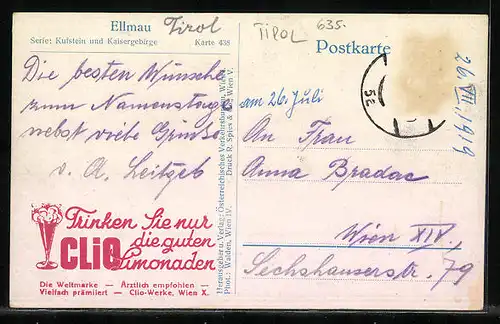 Ellmau Tirol
Serie: Kufstein und Kaisergebirge Karte 438
TIROL
635.
Postkarte
26. VII. 1919
52
Die besten Wünsche
zum Namenstage
nebst viele Grüße
v. A. Leitgeb
am 26. Juli
An Frau
Anna Bradac
Wien XIV,
Sechshauserstr. 79
Herausgeber u. Verlag: Österreichisches Verkehrsbureau, Wien
Druck R. Spies & Co, Wien V.
Phot.: Walden, Wien IV.
Trinken Sie nur
die guten
CLIO Limonaden
Die Weltmarke — Ärztlich empfohlen —
Vielfach prämiiert — Clio-Werke, Wien X.